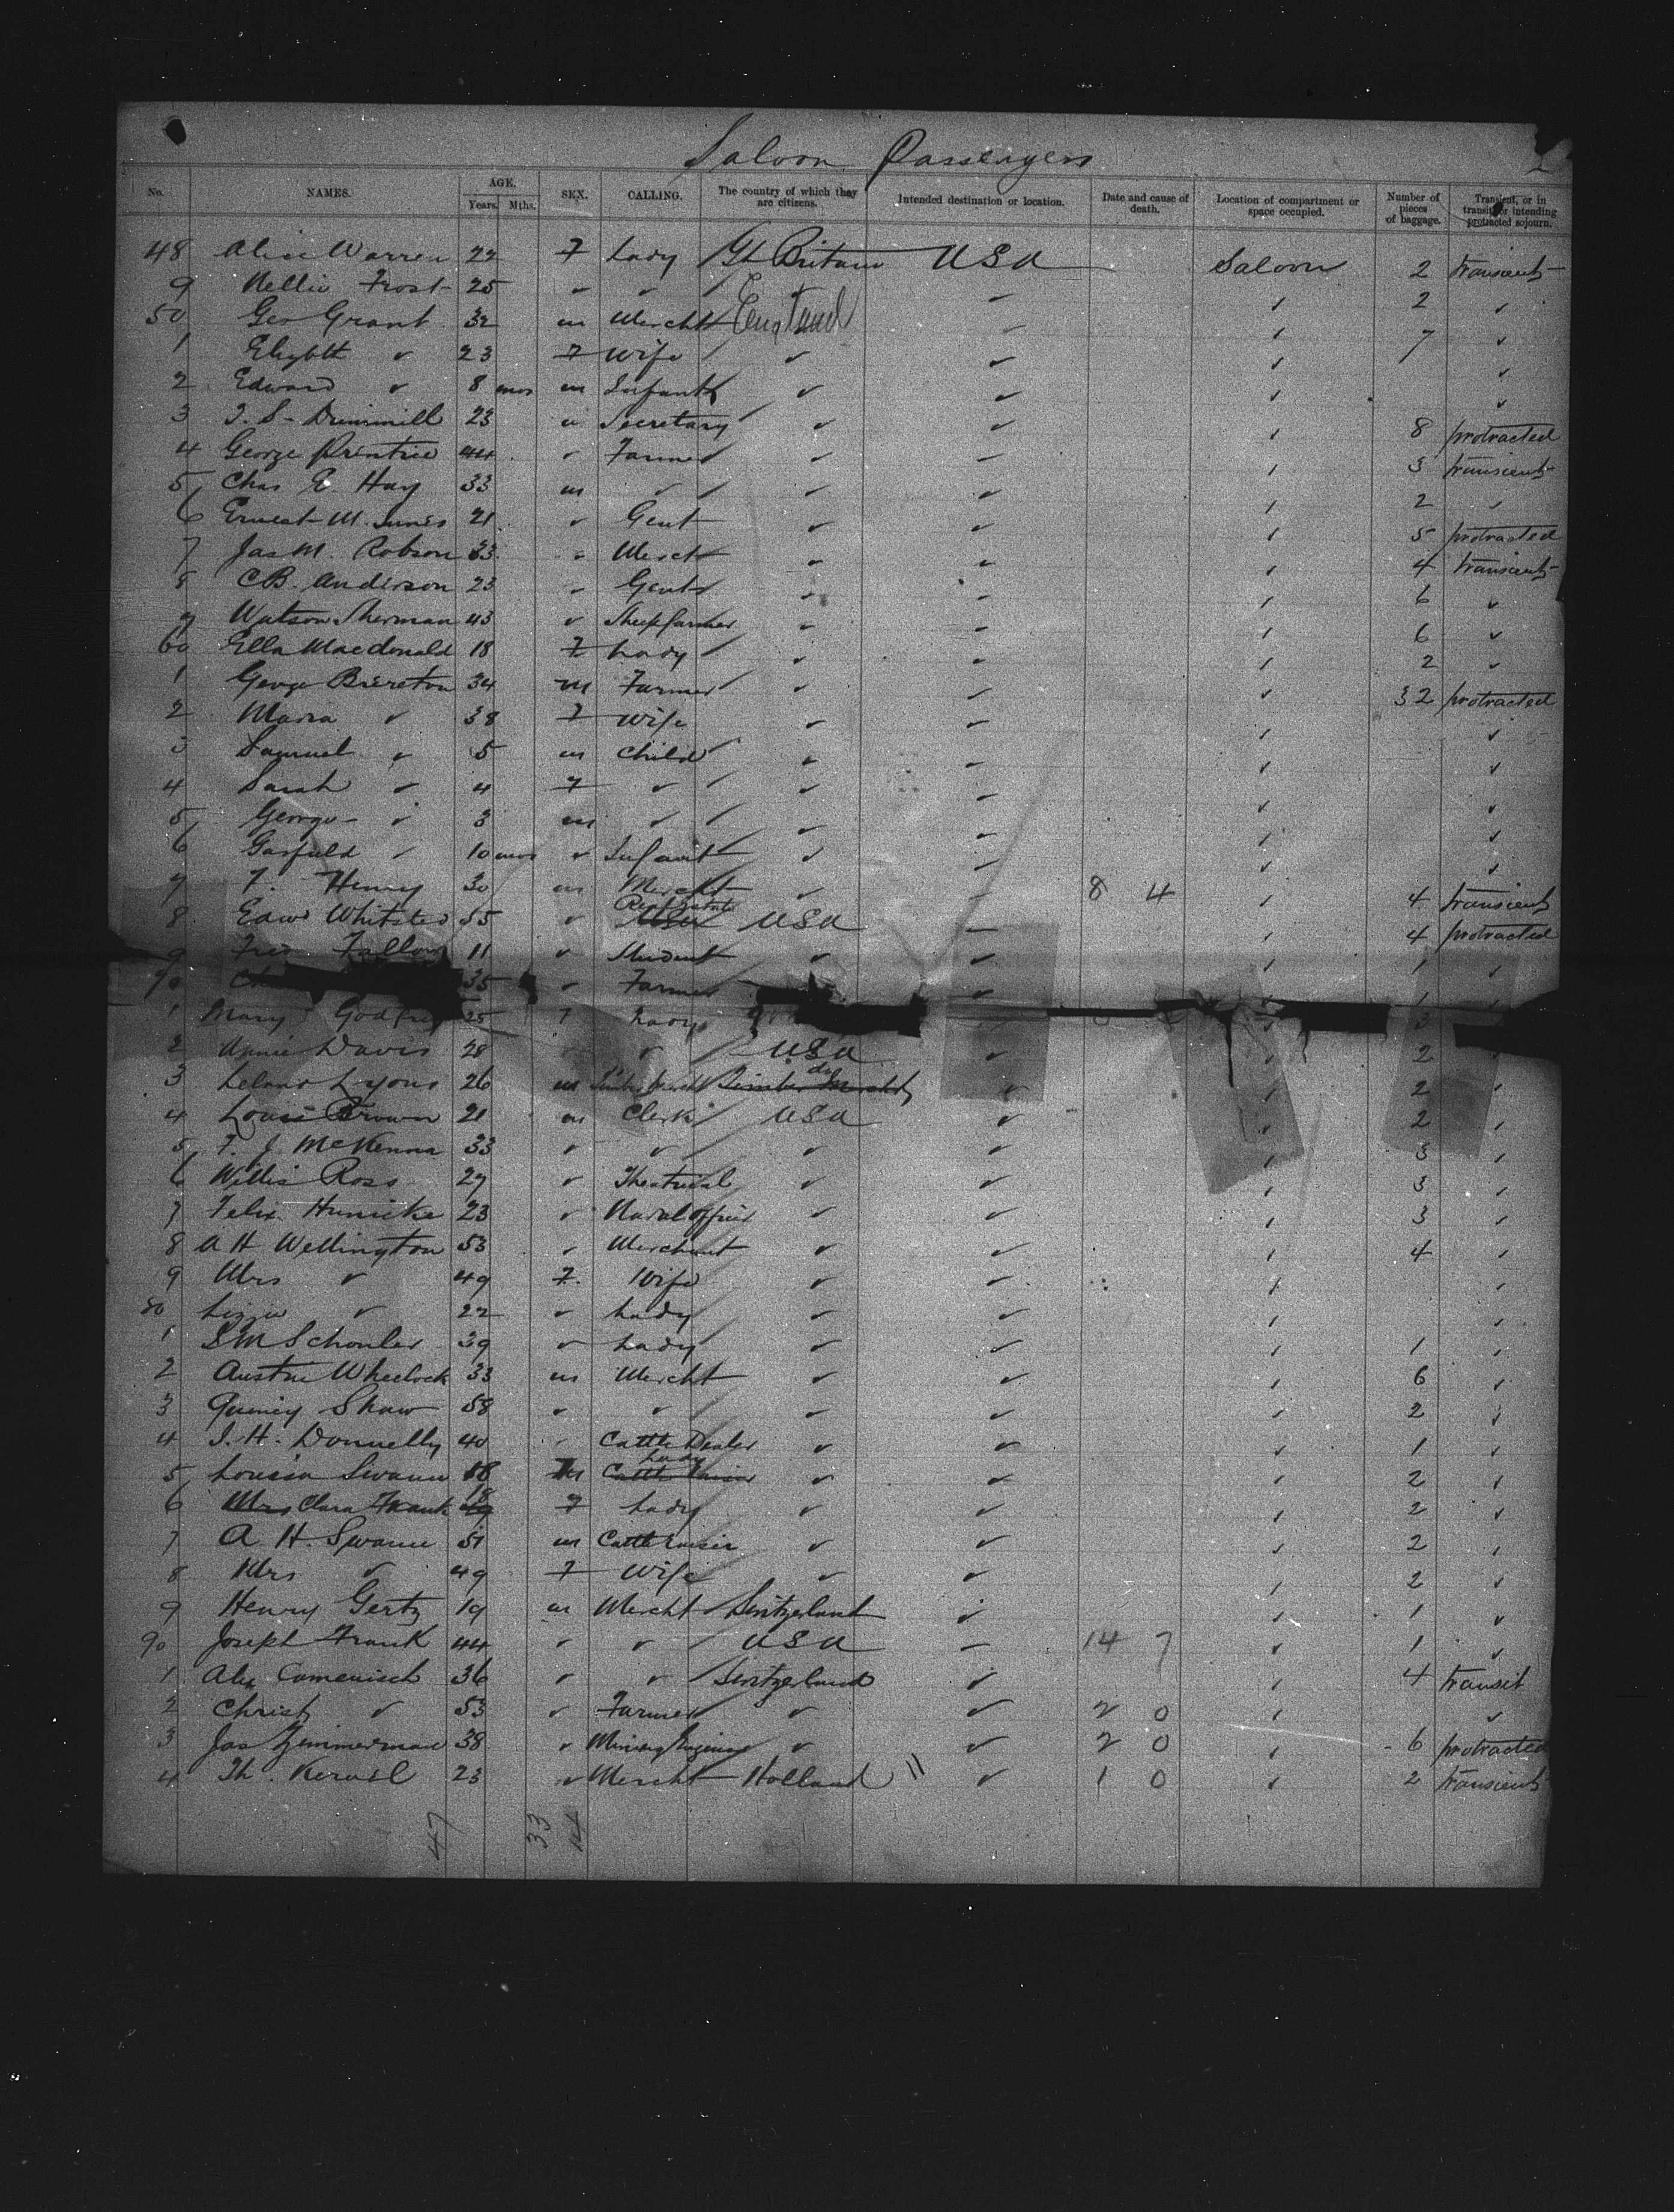 Saloon Passengers 2
No. NAMES. AGE. Years. Mths. SEX. CALLING. The country of which they are citizens. Intended destination or location. Date and cause of death. Location of compartment or space occupied. Number of pieces of baggage. Transient, or in transit or intending protracted sojourn.
48 Alice Warren 22 F Lady Gt Britain USA Saloon 2 transient
9 Nellie Frost 25 ✓ ✓ 2 ✓
50 Geo Grant 32 m Mercht England 7 ✓
1 Elizbth ✓ 23 F Wife ✓ ✓
2 Edward ✓ 8 mos m Infant ✓ ✓
3 23 Secretary ✓ 8 protracted
4 George Prentice 44 ✓ Farmer ✓ 3 transient
5 Chas E Hay 33 m ✓ ✓ 2 ✓
6 Ernest M. 21 ✓ Gent ✓ 5 protracted
7 Jas M. Robson 33 ✓ Merct ✓ 4 transient
8 C B. Anderson 23 ✓ Gent ✓ 6 ✓
9 Watson Sherman 43 ✓ Sheepfarmer ✓ 6 ✓
60 Ella Macdonald 18 F Lady ✓ 2 ✓
1 George Brereton 34 m Farmer ✓ 32 protracted
2 Maria ✓ 38 F Wife ✓ ✓
3 Samuel ✓ 5 m Child ✓ ✓
4 Sarah ✓ 4 F ✓ ✓ ✓
5 George ✓ 3 m ✓ ✓ ✓
6 Garfield ✓ 10 mos ✓ Infant ✓ ✓
7 F. Henry 30 m Mercht ✓ 8 4 4 transient
8 Edwd Whitsted 55 ✓ Real Estate USA 4 protracted
9 Fred Fallows 11 ✓ Student ✓ 1 ✓
70 35 ✓ Farmer 1
1 Mary 25 F Lady 3
2 Annie Davis 28 ✓ USA 2
3 Leland Lyons 26 m do 2
4 Louis Brown 21 m Clerk USA 2
5 F. J. McKenna 33 ✓ ✓ ✓ 3
6 Willis Ross 27 ✓ Theatrical ✓ 3
7 Felix Hunicke 23 ✓ Naval officer ✓ 3
8 A H Wellington 53 ✓ Merchant ✓ 4
9 Mrs ✓ 49 F. Wife ✓
80 Lizzie ✓ 22 ✓ Lady ✓
1 39 ✓ Lady ✓ 1
2 Austin Wheelock 33 m Mercht ✓ 6
3 Quincy Shaw 58 ✓ ✓ ✓ 2
4 J. H. Donnelly 40 Cattle Dealer ✓ 1
5 Louisa Swann 18 Lady Cattle raiser ✓ 2
6 Mrs Clara Frank 18 F Lady ✓ 2
7 A H. Swann 51 m Cattle raiser ✓ 2
8 Mrs ✓ 49 F Wife ✓ 2 ✓
9 Henry Gertz 19 m Mercht Switzerland ✓ 1 ✓
90 Joseph Frank 44 ✓ ✓ USA 14 7 1 ✓
1 Alex Camenisch 36 ✓ ✓ Switzerland ✓ 4 transit
2 Christ ✓ 53 ✓ Farmer ✓ ✓ 2 0 ✓
3 Jas Zimmerman 38 ✓ Mining Engineer ✓ ✓ 2 0 6 protracted
4 Th. 23 ✓ Mercht Holland ✓ 1 0 2 transient
47 33 14